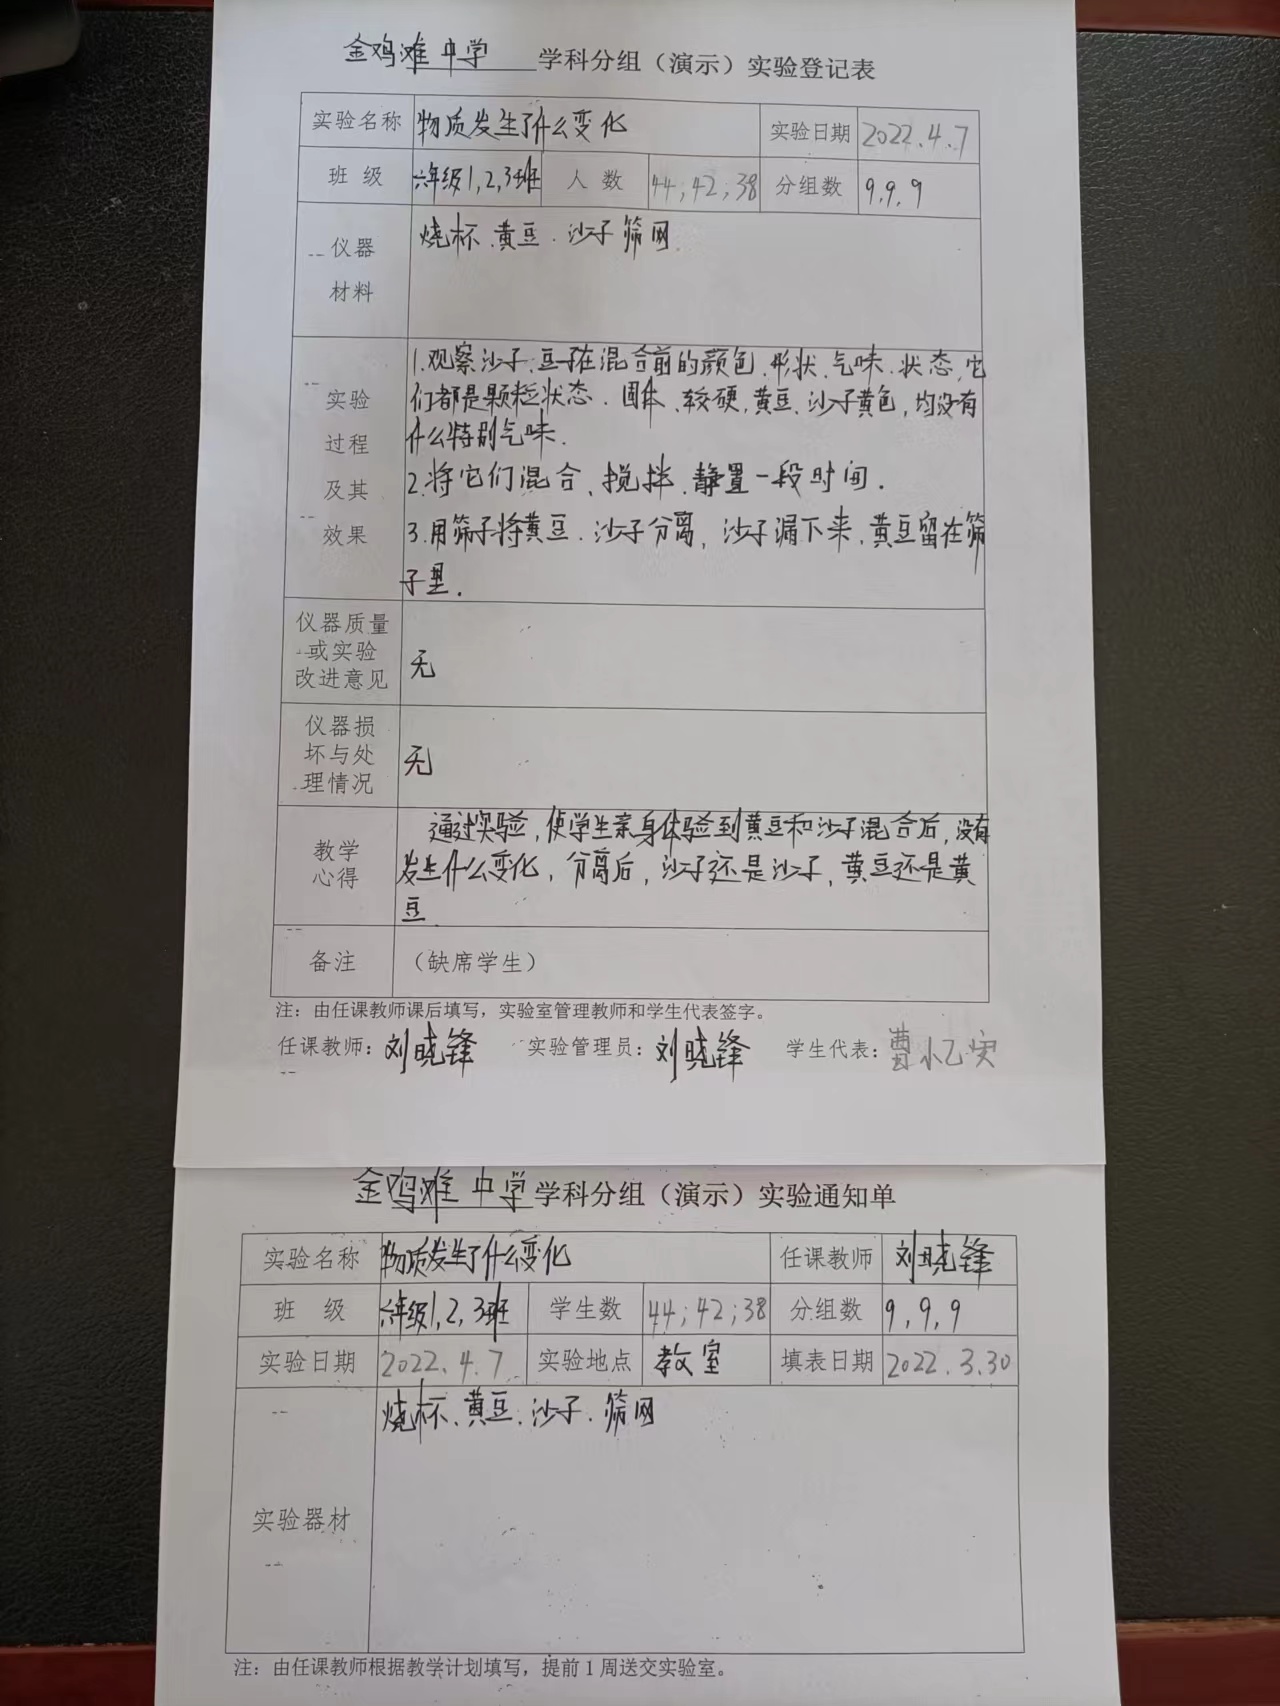 金鸡滩中学 学科分组（演示）实验登记表
实验名称 物质发生了什么变化 实验日期 2022.4.7
班级 六年级1,2,3班 人数 44;42;38 分组数 9,9,9
仪器 烧杯、黄豆、沙子 筛网
材料
1.观察沙子、豆子在混合前的颜色、形状、气味、状态,它
实验 们都是颗粒状态、固体、较硬,黄豆、沙子黄色,均没有
过程 什么特别气味.
及其 2.将它们混合、搅拌、静置一段时间.
效果 3.用筛子将黄豆、沙子分离,沙子漏下来,黄豆留在筛
子里.
仪器质量
或实验 无
改进意见
仪器损
坏与处 无
理情况
通过实验,使学生亲身体验到黄豆和沙子混合后,没有
教学 发生什么变化,分离后,沙子还是沙子,黄豆还是黄
心得 豆.
备注 （缺席学生）
注：由任课教师课后填写，实验室管理教师和学生代表签字。
任课教师：刘晓锋 实验管理员：刘晓锋 学生代表：曹
金鸡滩中学学科分组（演示）实验通知单
实验名称 物质发生了什么变化 任课教师 刘晓锋
班级 六年级1,2,3班 学生数 44;42;38 分组数 9,9,9
实验日期 2022.4.7 实验地点 教室 填表日期 2022.3.30
烧杯、黄豆、沙子、筛网
实验器材
注：由任课教师根据教学计划填写，提前1周送交实验室。